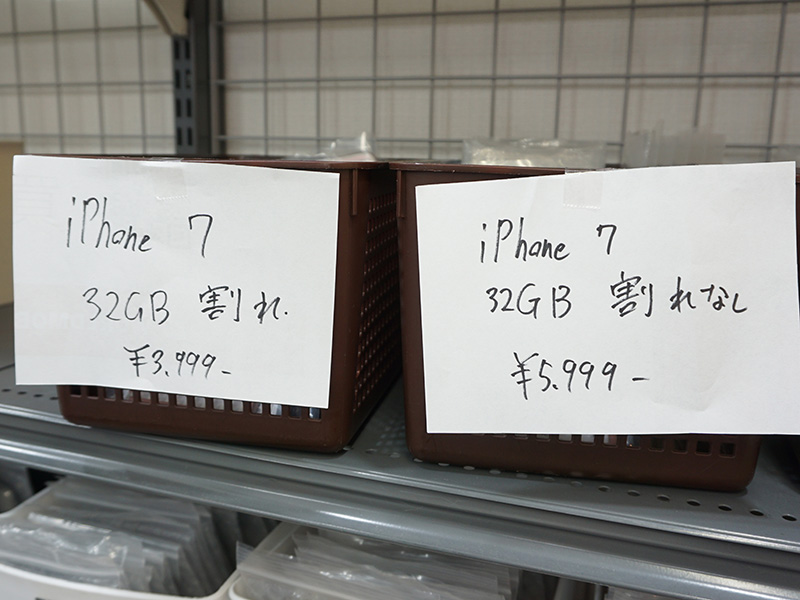 iPhone 7
32GB 割れ.
¥3.999-
iPhone 7
32GB 割れなし
¥5.999-